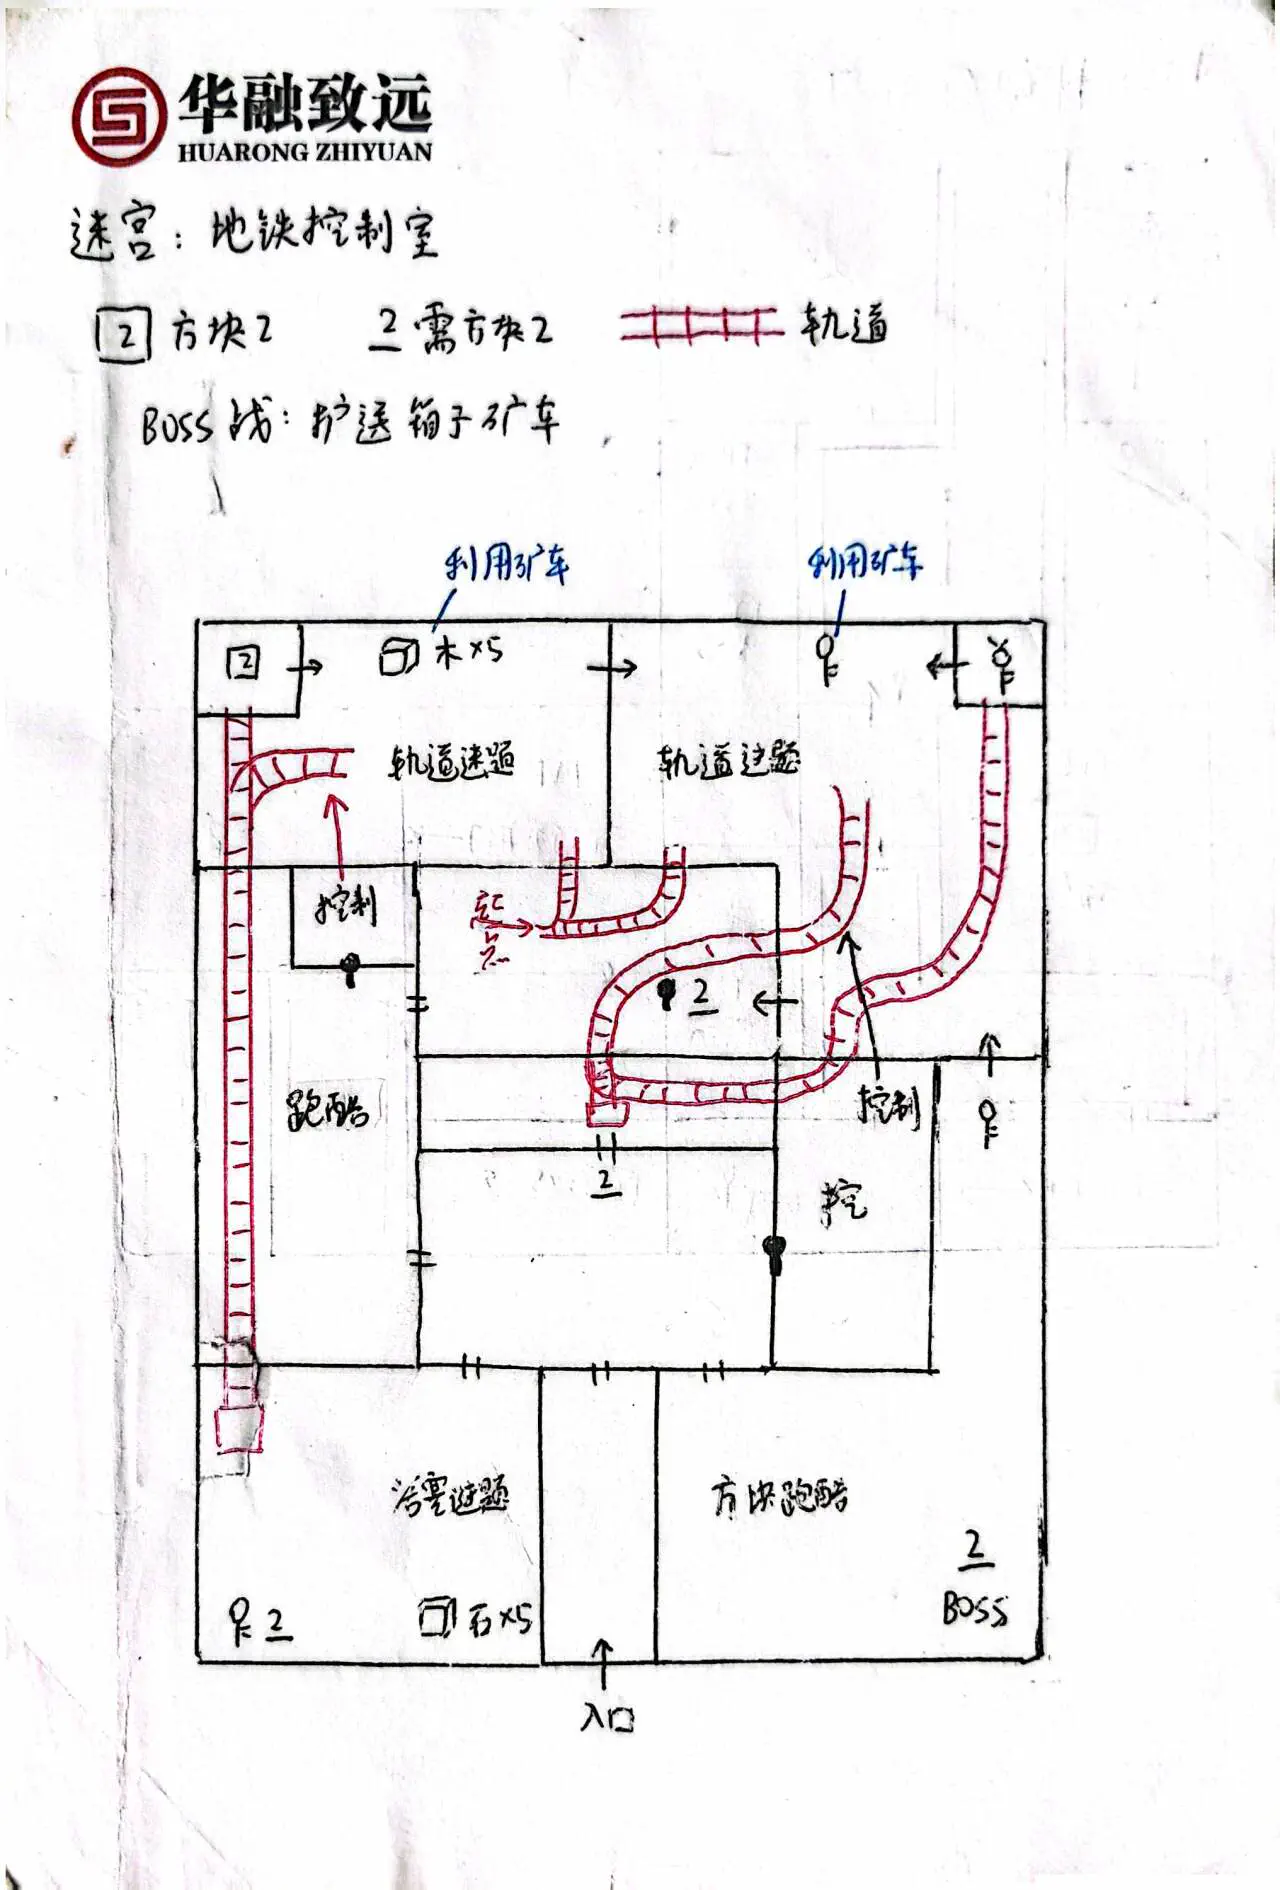 华融致远
HUARONG ZHIYUAN
迷宫：地铁控制室
2 方块2 2 需方块2 轨道
BOSS战：护送箱子矿车
利用矿车 利用矿车
2 木×5
轨道迷题 轨道迷题
控制
2
跑酷 控制
控
2
浴室谜题 方块跑酷
2
2 石×5 BOSS
入口